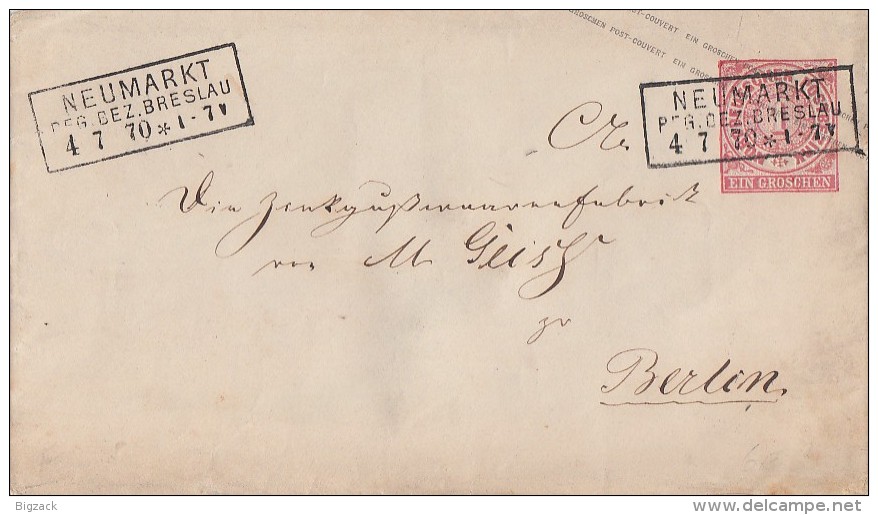 EIN GROSCHEN POST-COUVERT EIN GROSCHEN POST
GROSCHEN POST-COUVERT EIN GROSCHEN
NEUMARKT
REG. BEZ. BRESLAU
4 7 70 * 1-7V
NEUMARKT
REG. BEZ. BRESLAU
4 7 70 * 1-7V
EIN GROSCHEN
An
Die Zinkgußwaarenfabrik
von M Geiß
zu
Berlin.
Bigzack
www.delcampe.net